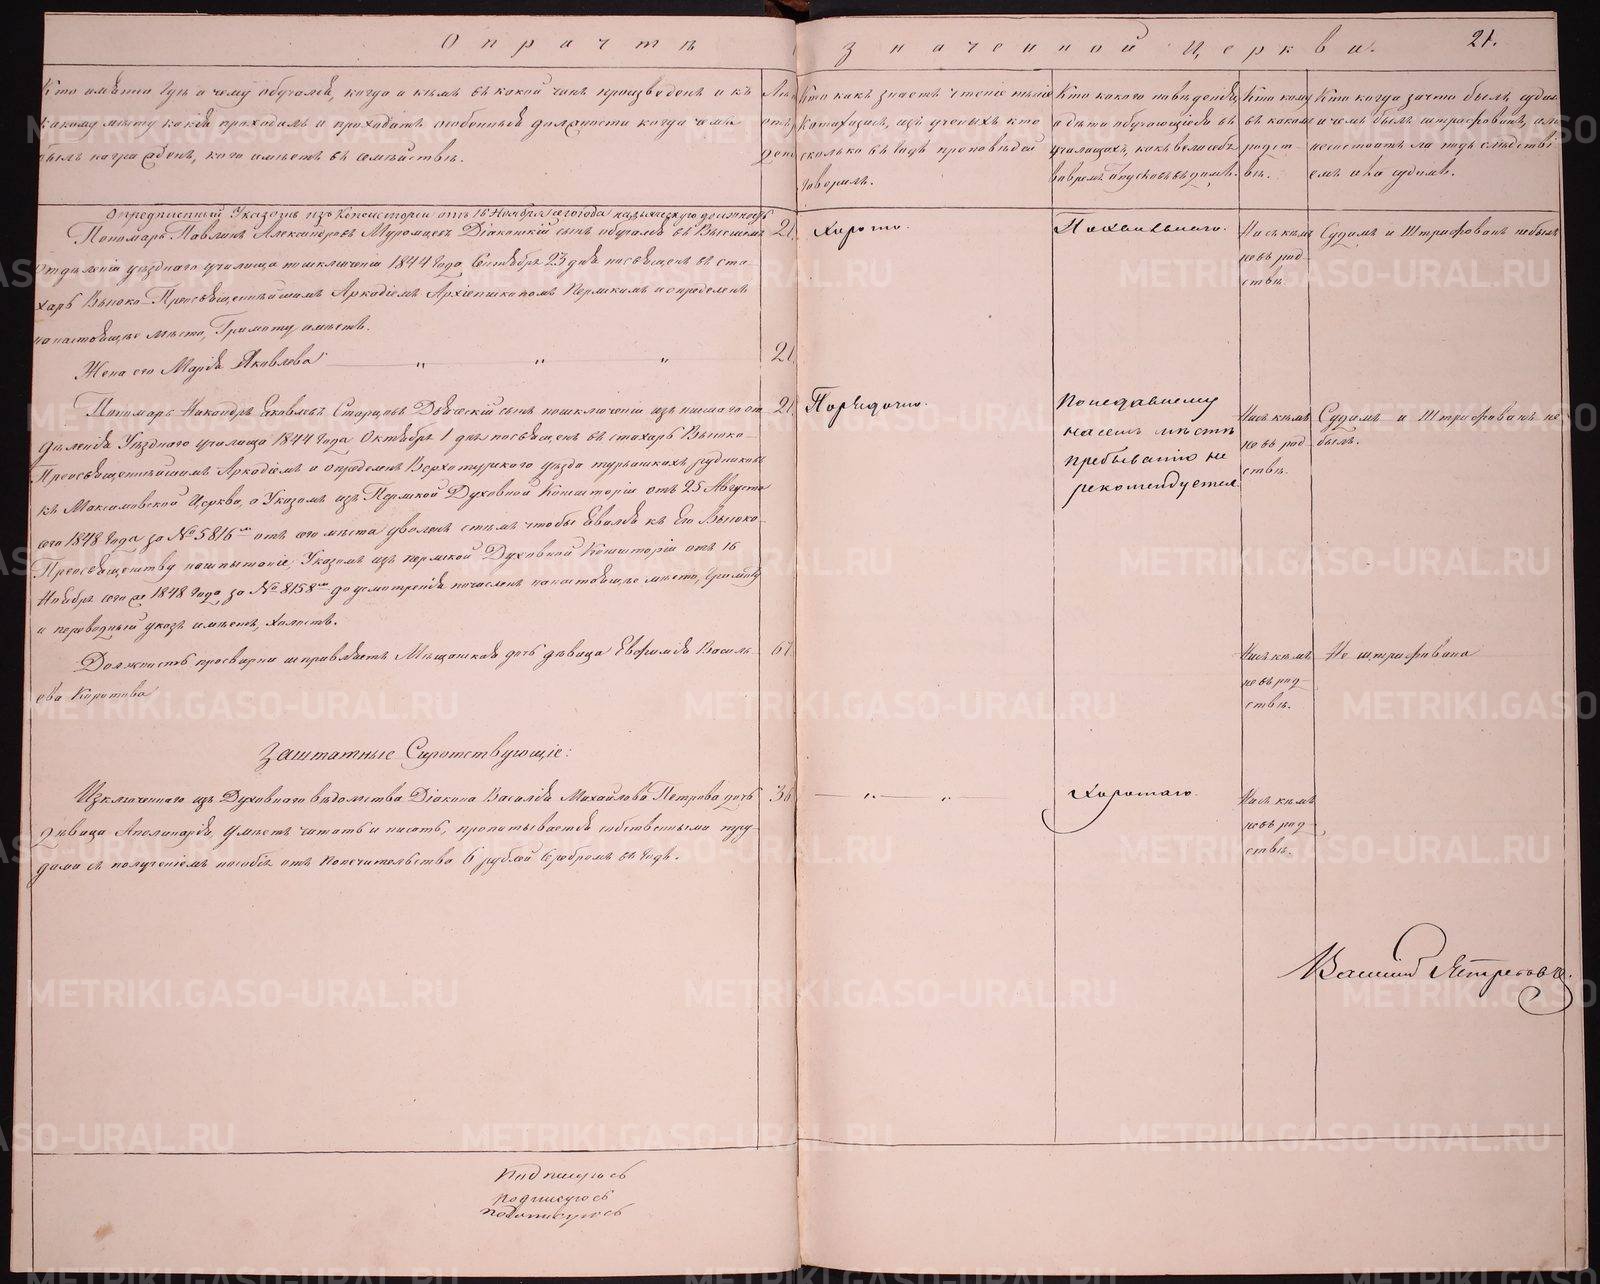 О причтѣ
значенной Церкви.
21.
Кто имянно гдѣ и чему обучался, когда и кѣмъ въ какой чинъ произведенъ и къ
какому мѣсту какія проходилъ и проходитъ особенныя должности когда чемъ
былъ награжденъ, кого имѣетъ въ семействѣ.
Кто какъ знаетъ чтеніе пѣніе
катихизисъ, изъ ученыхъ кто
сколько въ годъ проповѣдей
говорилъ.
Кто какого поведенія,
и дѣти обучающіяся въ
училищахъ, какъ вели себя
вовремя отпусковъ въ домѣ.
Кто кому
въ какомъ
родст-
вѣ.
Кто когда зачто былъ судимъ
и чемъ былъ штрафованъ, или
несостоитъ ли подъ слѣдстві-
емъ и на судимѣ.
опредписаніи Указомъ изъ Консисторіи отъ 16 Ноября
Пономарь Павлинъ Александровъ Муромцевъ Діаконскій сынъ обучался въ Высшемъ
отдѣленіи уѣзднаго училища поисключеніи 1844 года Сентября 23 дня посвященъ въ сти-
харь Высоко-Преосвященнѣйшимъ Аркадіемъ Архіепископомъ Пермскимъ и опредѣленъ
на настоящее мѣсто, Грамоту имѣетъ.
21
Хорошо.
Похвальнаго.
Ни съ кѣмъ
не въ род-
ствѣ.
Судимъ и Штрафованъ небылъ
Жена его Марія Яковлева — „ „ „
21
Пономарь Никандръ Яковлевъ Старцовъ Дьяческій сынъ поисключеніи изъ нисшаго от-
дѣленія Уѣзднаго училища 1844 года Октября 1 дня посвященъ въ стихарь Высоко-
Преосвященнѣйшимъ Аркадіемъ и опредѣленъ Верхотурскаго уѣзда турьинскихъ рудниковъ
къ Максимовской Церкви, а Указомъ изъ Пермской Духовной Консисторіи отъ 25 Августа
сего 1848 года за № 5816м отъ сего мѣста уволенъ стѣмъ чтобы явился къ Его Высоко-
Преосвященству наиспытаніе, Указомъ изъ пермской Духовной Консисторіи отъ 16
Ноября сего же 1848 года за № 8158м до усмотренія причисленъ на настоящее мѣсто, Грамоту
и переводный указъ имѣетъ, холостъ.
21
Порядочно.
Понедавнему
насемъ мѣстѣ
пребыванію не
рекомендуется.
Ни съ кѣмъ
не въ род-
ствѣ.
Судимъ и Штрафованъ не
былъ.
Должность просвирни исправляетъ Мѣщанская дочь дѣвица Евфимія Василь-
ева Коротова
61
Ни съ кѣмъ
не въ род-
ствѣ.
Не штрафована
Заштатные Сиротствующіе:
Изключеннаго изъ Духовнаго вѣдомства Діакона Василія Михайлова Петрова дочь
дѣвица Апелинарія, умѣетъ читать и писать, пропитывается собственными тру-
дами съ полученіемъ пособія отъ попечительства 6 рублей серебромъ въ годъ.
36
— „ — „ —
Хорошаго.
Ни съ кѣмъ
не въ род-
ствѣ.
Василій Ястребовъ.
Подпишусь
подписуюсь
METRIKI.GASO-URAL.RU